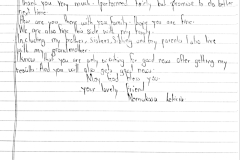 Thank you very much. I performed fairly but promise to do better
next time.
How are you there with you family. I hope you are fine.
We are also here to side with my family.
Including my mother, sisters, sibling and my parents I also live
with my grandmother.
I know that you are only waiting for good news after getting my
results. And you will also get good news.
May God bless you.
your lovely friend